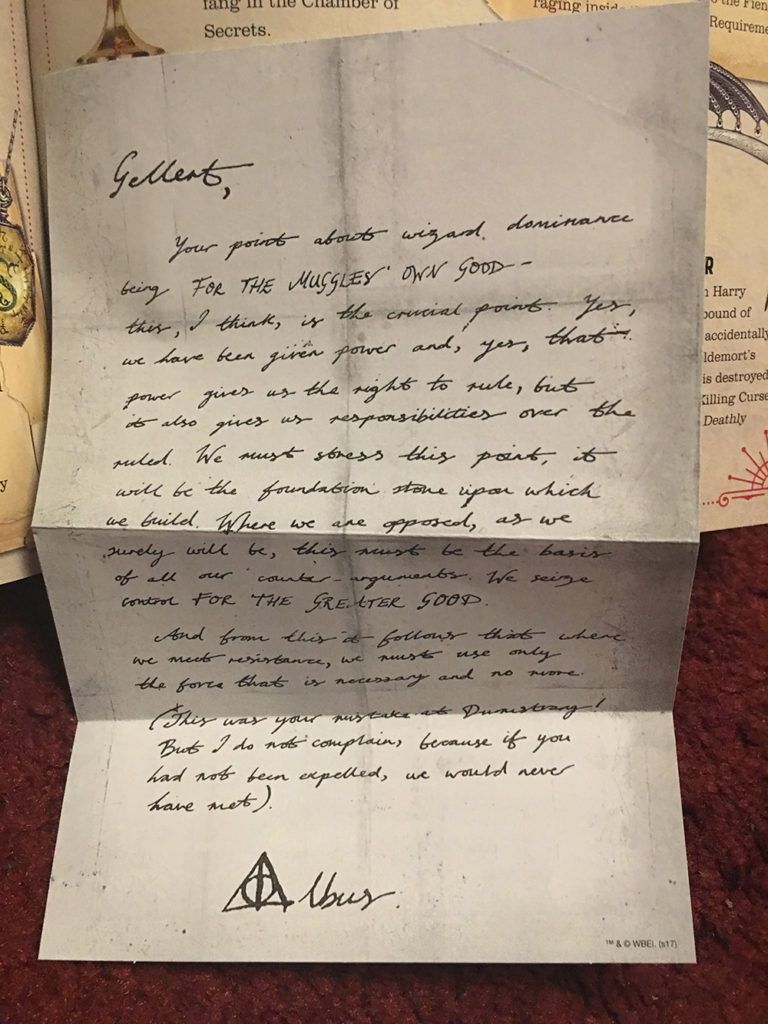 fang in the Chamber of
Secrets.
raging inside
the Fien
Requireme
Gellert,
Your point about wizard dominance
being FOR THE MUGGLES' OWN GOOD –
this, I think, is the crucial point. Yes,
we have been given power and, yes, that
power gives us the right to rule, but
it also gives us responsibilities over the
ruled. We must stress this point, it
will be the foundation stone upon which
we build. Where we are opposed, as we
surely will be, this must be the basis
of all our counter-arguments. We seize
control FOR THE GREATER GOOD.
And from this it follows that where
we meet resistance, we must use only
the force that is necessary and no more.
(This was your mistake at Durmstrang!
But I do not complain, because if you
had not been expelled, we would never
have met).
Albus.
™ & © WBEI. (s17)
R
Harry
bound of
accidentally
ldemort's
is destroyed
Killing Curse
Deathly
y